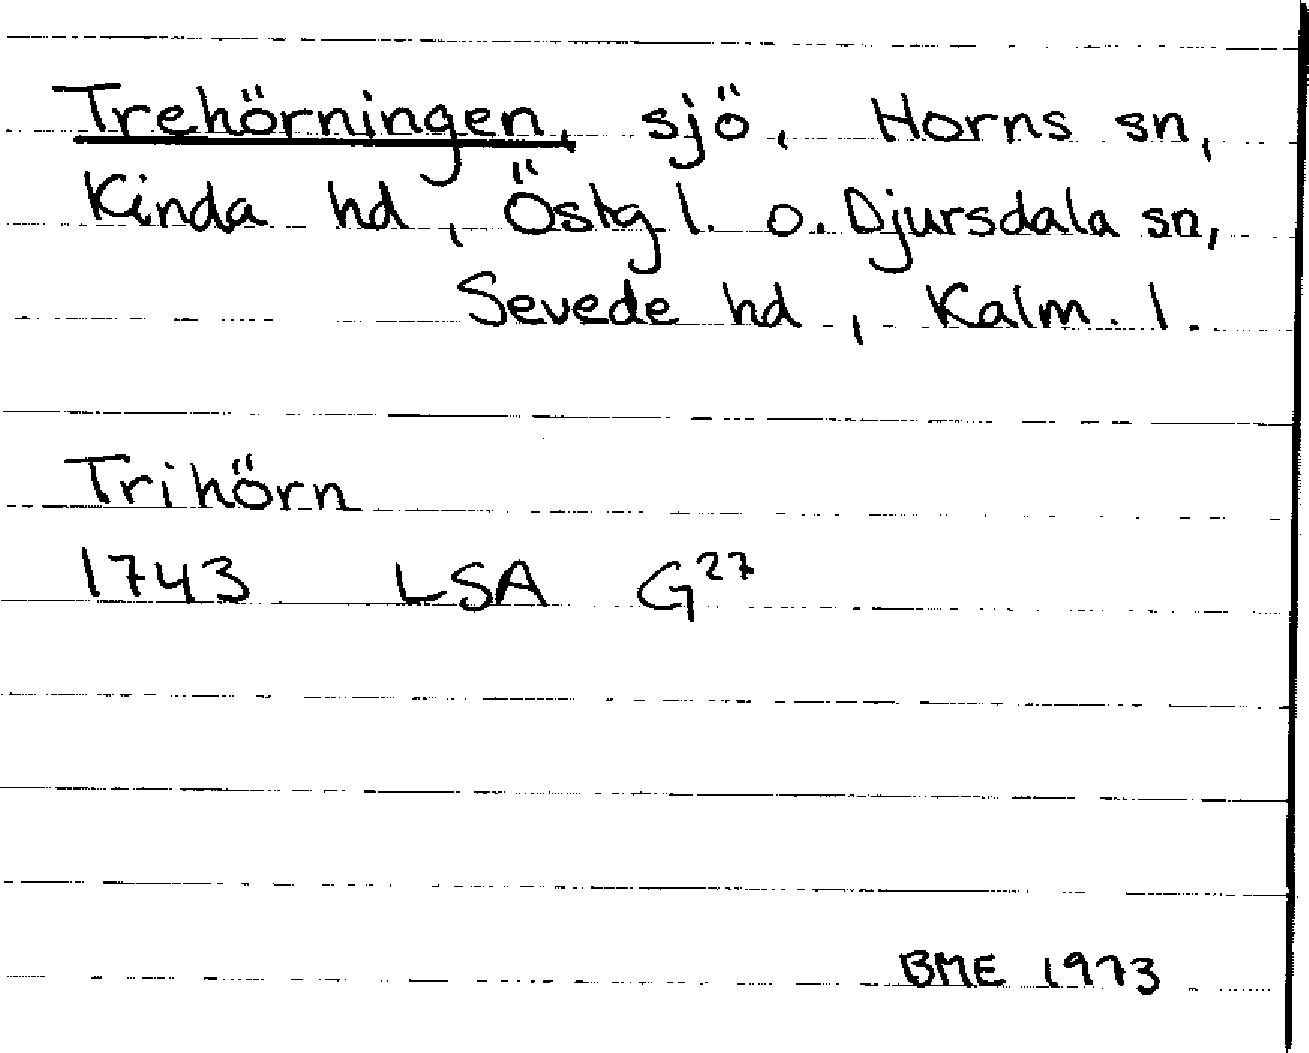 Trehörningen, sjö, Horns sn,
Kinda hd, Östg l. o. Djursdala sn,
Sevede hd, Kalm. l.
Trihörn
1743 LSA G²⁷
BME 1973